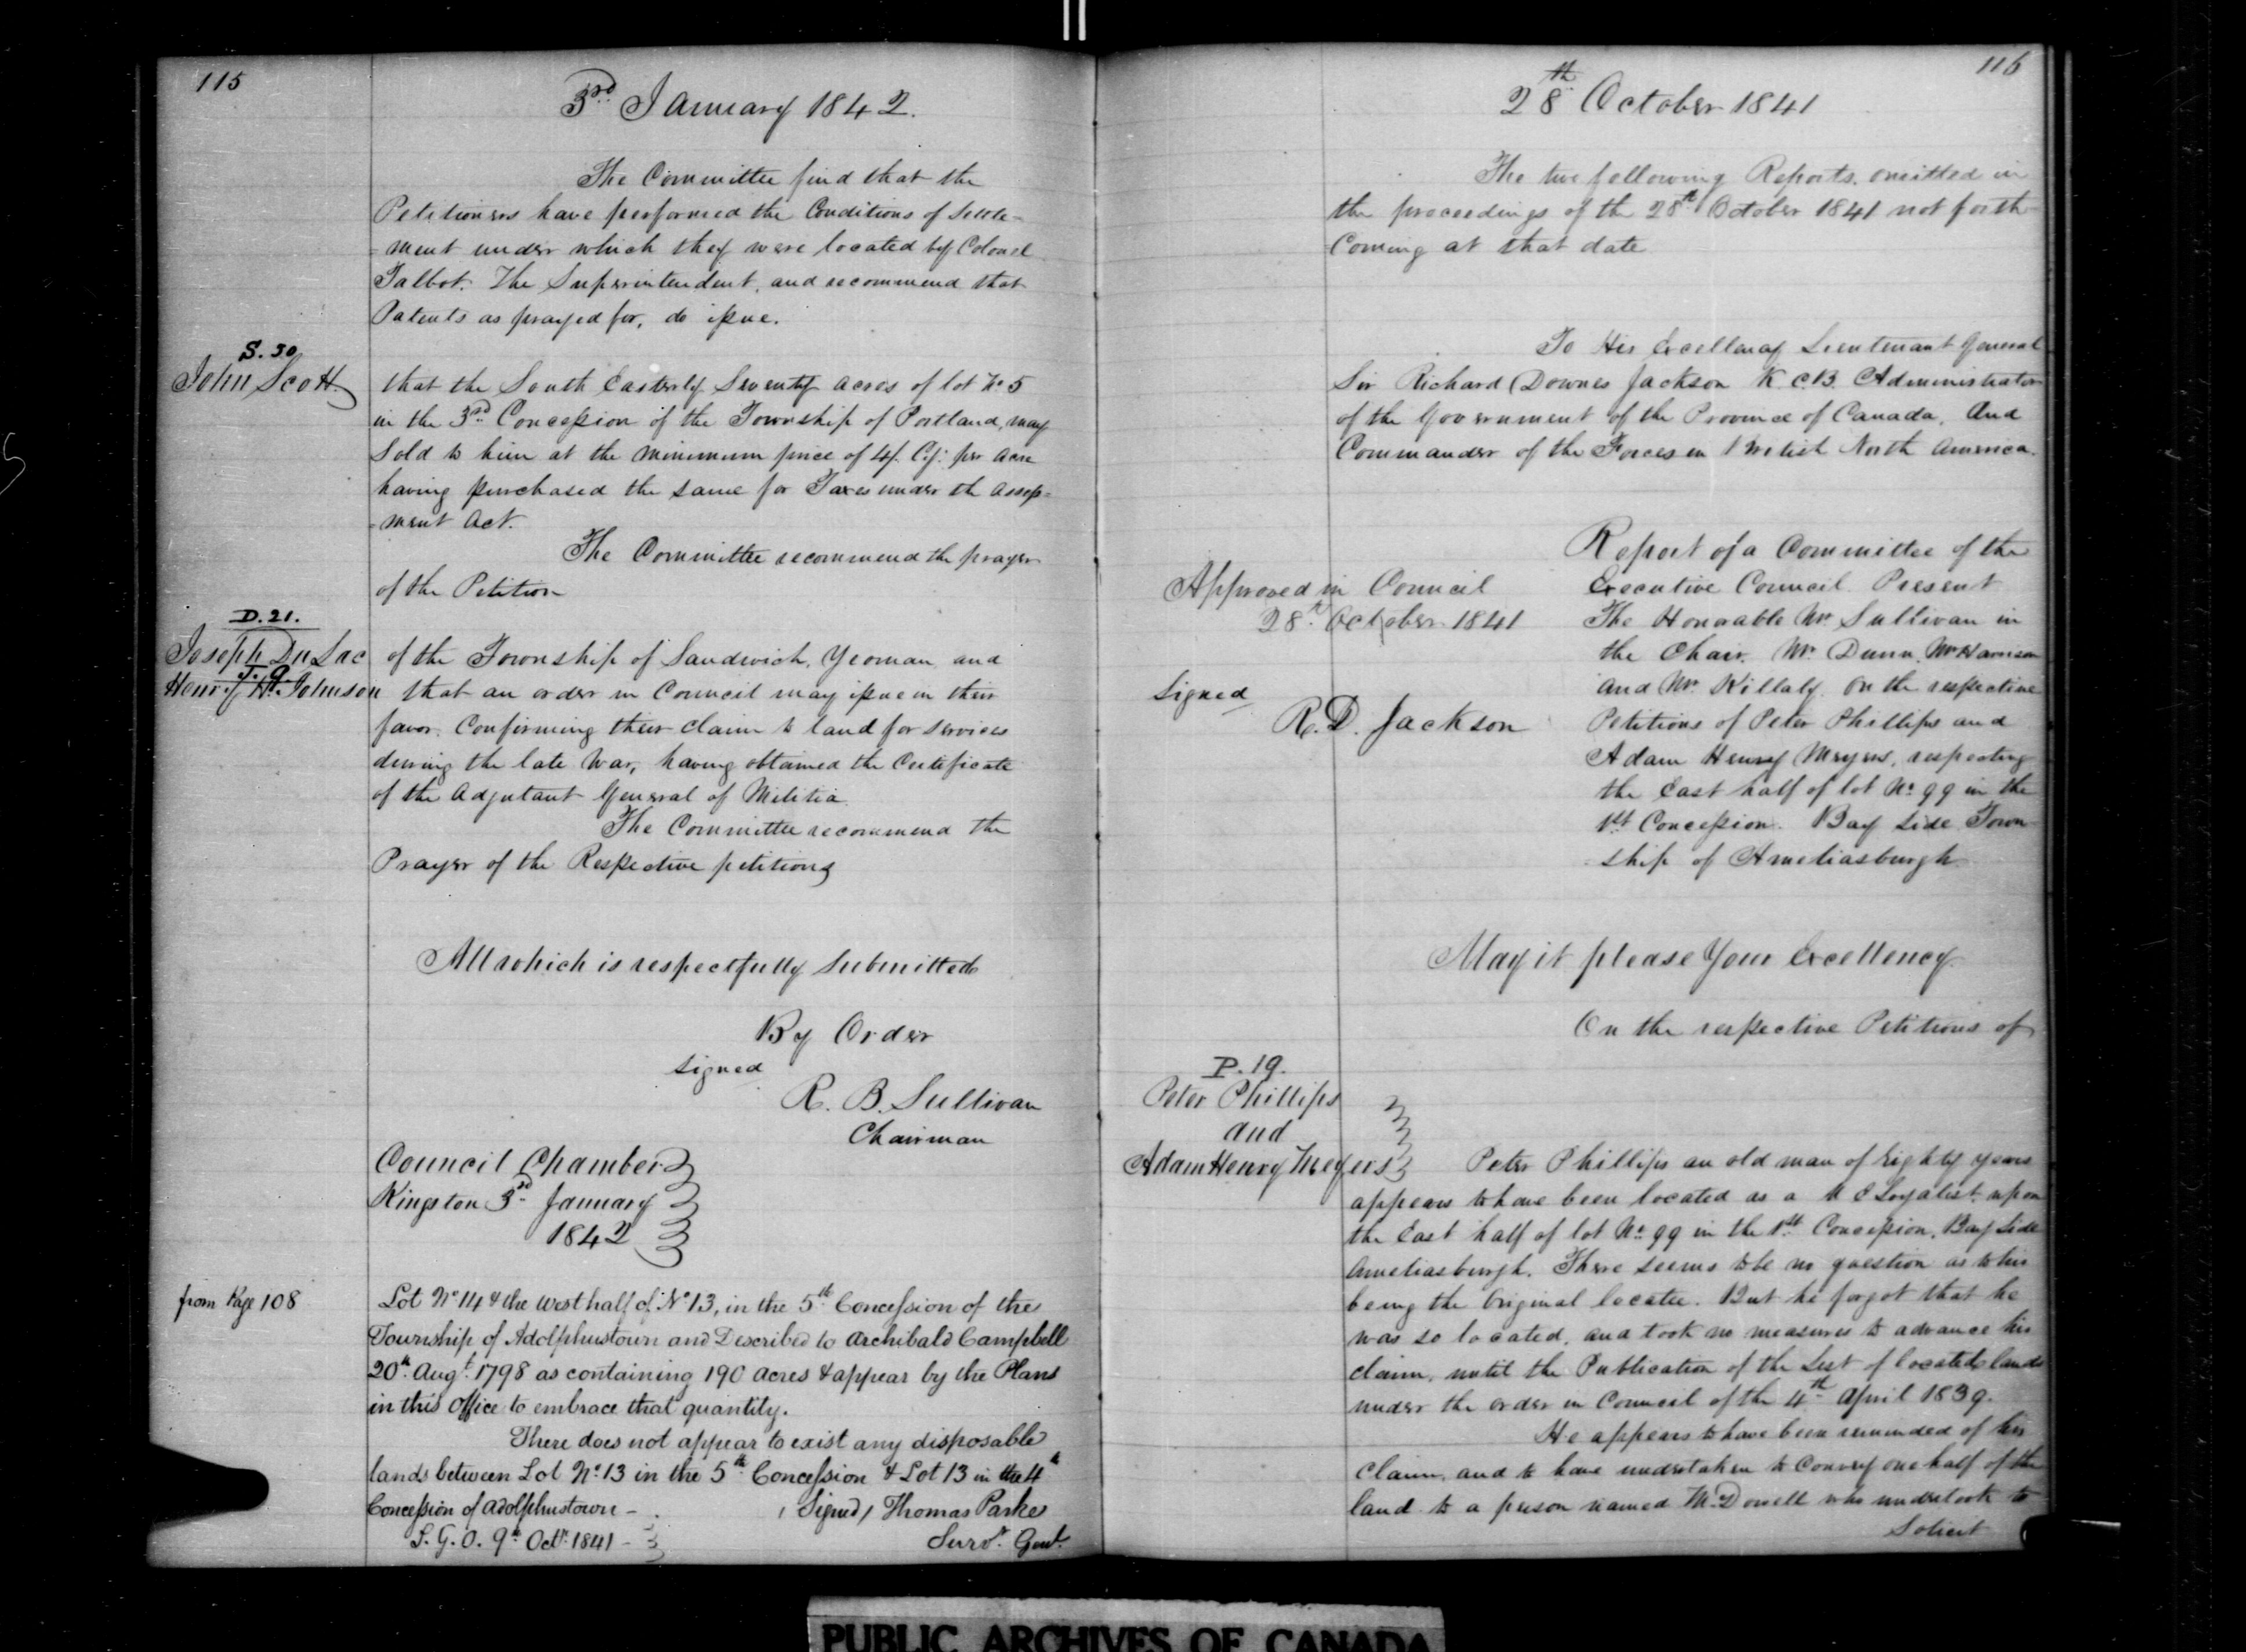 115
3rd January 1842.
The Committee find that the
Petitioners have performed the Conditions of Settle-
-ment under which they were located by Colonel
Talbot. The Superintendent, and recommend that
Patents as prayed for, do issue.
S. 30
John Scott
that the South Easterly Seventy acres of lot No. 5
in the 3rd Concession of the Township of Portland, may
Sold to him at the minimum price of 4/. Cy: per Acre
having purchased the same for Taxes under the Assess-
-ment Act.
The Committee recommend the prayer
of the Petition
D. 21.
Joseph Du Lac
of the Township of Sandwich, Yeoman, and
J. 9
Henry H. Johnson
that an order in Council may issue in their
favor. Confirming their claim to land for services
during the late War, having obtained the Certificate
of the Adjutant General of Militia.
The Committee recommend the
Prayer of the Respective petitions
All which is respectfully Submitted
By Order
signed
R. B. Sullivan
Chairman
Council Chamber
Kingston 3rd January
1842
from Page 108
Lot No 14 & the West half of No 13, in the 5th Concession of the
Township of Adolphustown and Described to Archibald Campbell
20th Augt. 1798 as containing 190 acres & appear by the Plans
in this Office to embrace that quantity.
There does not appear to exist any disposable
lands between Lot No. 13 in the 5th Concession & Lot 13 in the 4th
Concession of Adolphustown -
(Signed) Thomas Parke
S. G. O. 9th Octr. 1841 -
Survr. Genl.
116
28th October 1841
The two following Reports, omitted in
the proceedings of the 28th October 1841 not forth-
Coming at that date
To His Excellency Lieutenant General
Sir Richard Downes Jackson K.C.B. Administrator
of the Government of the Province of Canada, And
Commander of the Forces in British North America.
Report of a Committee of the
Executive Council. Present
The Honorable Mr. Sullivan in
the Chair. Mr. Dunn, Mr Harrison
and Mr. Killaly. On the respective
Petitions of Peter Phillips and
Adam Henry Meyers, respecting
the East half of lot No. 99 in the
1st Concession. Bay Side Town
-ship of Ameliasburgh
Approved in Council
28th October 1841
Signed
R. D. Jackson
May it please Your Excellency.
On the respective Petitions of
P. 19.
Peter Phillips
and
Adam Henry Meyers
Peter Phillips an old man of Eighty years
appears to have been located as a U E Loyalist, upon
the East half of lot No. 99 in the 1st Concession, Bay Side
Ameliasburgh. There seems to be no question as to his
being the Original locatee. But he forgot that he
was so located, and took no measures to advance his
claim, until the Publication of the List of located lands
under the order in Council of the 4th April 1839.
He appears to have been reminded of his
claim, and to have undertaken to Convey one half of the
land to a person named McDowell who undertook to
Solicit
PUBLIC ARCHIVES OF CANADA